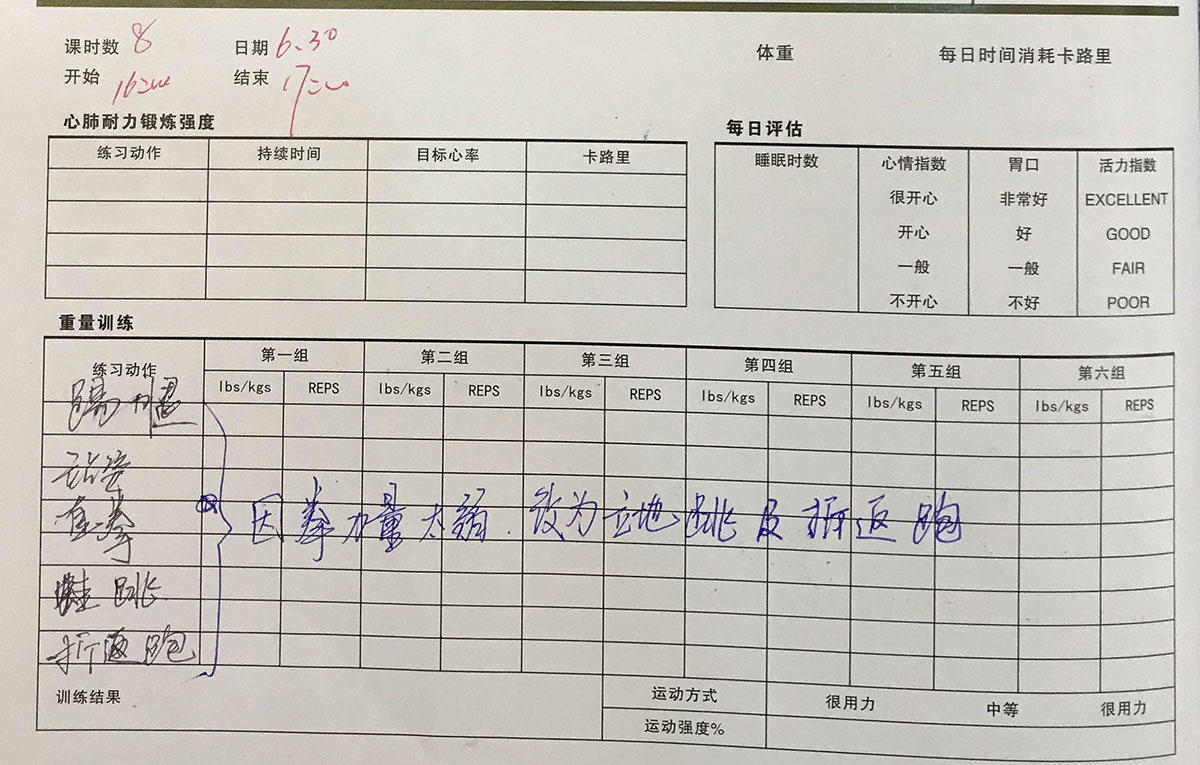 课时数 8 日期 6.30 体重 每日时间消耗卡路里
开始 结束
心肺耐力锻炼强度
练习动作 持续时间 目标心率 卡路里
每日评估
睡眠时数 心情指数 胃口 活力指数
很开心 非常好 EXCELLENT
开心 好 GOOD
一般 一般 FAIR
不开心 不好 POOR
重量训练
练习动作 第一组 第二组 第三组 第四组 第五组 第六组
lbs/kgs REPS lbs/kgs REPS lbs/kgs REPS lbs/kgs REPS lbs/kgs REPS lbs/kgs REPS
站姿
直拳
因拳力量太弱.改为立地跳及折返跑
蛙跳
折返跑
训练结果 运动方式 很用力 中等 很用力
运动强度%